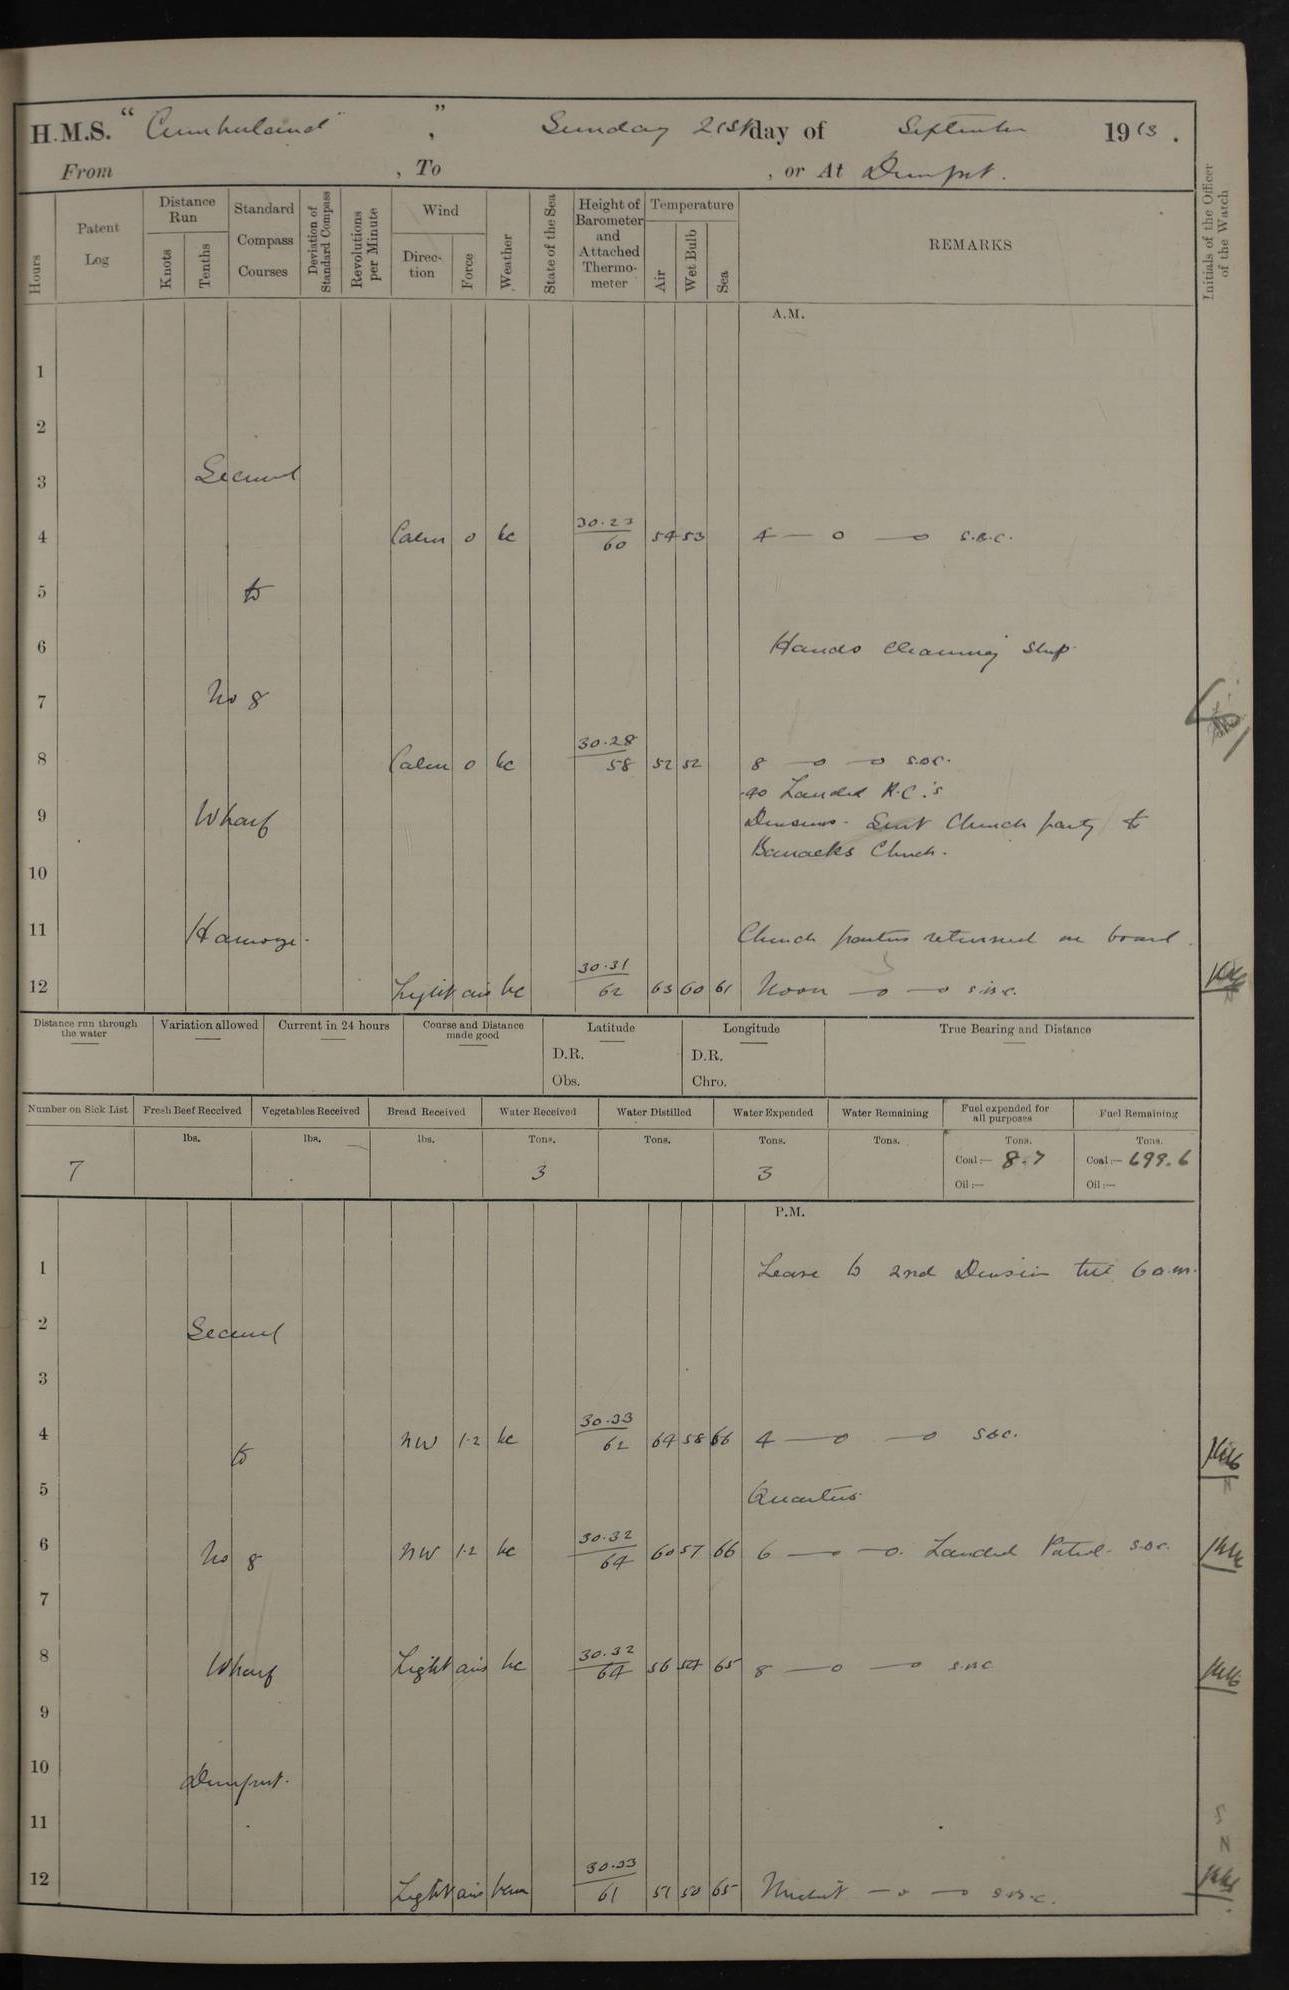 H.M.S. "Cumberland", Sunday 21st day of September 1913.
From , To , or At Devonport.
Hours
Patent Log
Distance Run
Knots
Tenths
Standard Compass Courses
Deviation of Standard Compass
Revolutions per Minute
Wind
Direction
Force
Weather
State of the Sea
Height of Barometer and Attached Thermometer
Temperature
Air
Wet Bulb
Sea
REMARKS
Initials of the Officer of the Watch
A.M.
1
2
3 Secured
4 Calm 0 bc 30.23 60 54 53 4 — o — o s.b.c.
5 to
6 Hands cleaning ship
7 No 8
8 Calm 0 bc 30.28 58 52 52 8 — o — o s.b.c.
Landed R.C.'s
9 Wharf Divisions. Sent Church party to
Barracks Church.
10
11 Hamoaze. Church parties returned on board.
12 Light airs bc 30.31 62 63 60 61 Noon — o — o s.b.c.
Distance run through the water
Variation allowed
Current in 24 hours
Course and Distance made good
Latitude
D.R.
Obs.
Longitude
D.R.
Chro.
True Bearing and Distance
Number on Sick List
Fresh Beef Received
Vegetables Received
Bread Received
Water Received
Water Distilled
Water Expended
Water Remaining
Fuel expended for all purposes
Fuel Remaining
lbs. lbs. lbs. Tons. Tons. Tons. Tons. Tons. Tons.
7 3 3 Coal:— 8.7 Coal:— 699.6
Oil:— Oil:—
P.M.
1 Leave to 2nd Division till 6 a.m.
2 Secured
3
4 to NW 1.2 bc 30.33 62 64 58 66 4 — o — o s.b.c.
5 Quarters.
6 No 8 NW 1.2 bc 30.32 64 60 57 66 6 — o — o. Landed Patrol. s.b.c.
7
8 Wharf Light airs bc 30.32 64 56 54 65 8 — o — o s.b.c
9
10 Devonport.
11
12 Light airs bcm 30.33 61 51 50 65 Midnt — o — o s.b.c.